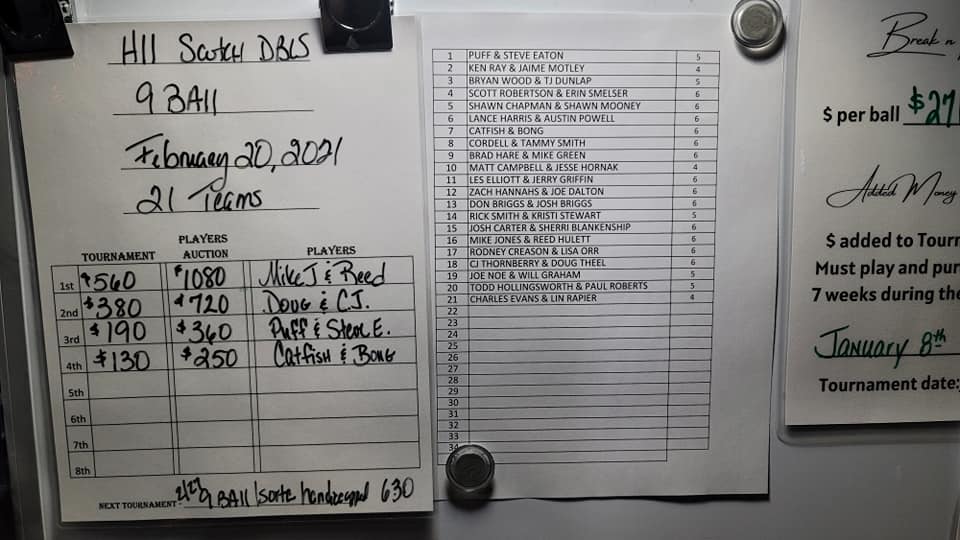 H11 Scotch DBLS
9 BAll
February 20, 2021
21 Teams
TOURNAMENT PLAYERS AUCTION PLAYERS
1st $560 $1080 Mike J & Reed
2nd $380 $720 Doug & C.J.
3rd $190 $360 Puff & Steve E.
4th $130 $250 Catfish & Bong
5th
6th
7th
8th
NEXT TOURNAMENT - 2/27 9 BAll handicapped 630
1 PUFF & STEVE EATON 5
2 KEN RAY & JAIME MOTLEY 4
3 BRYAN WOOD & TJ DUNLAP 5
4 SCOTT ROBERTSON & ERIN SMELSER 6
5 SHAWN CHAPMAN & SHAWN MOONEY 6
6 LANCE HARRIS & AUSTIN POWELL 6
7 CATFISH & BONG 6
8 CORDELL & TAMMY SMITH 6
9 BRAD HARE & MIKE GREEN 6
10 MATT CAMPBELL & JESSE HORNAK 4
11 LES ELLIOTT & JERRY GRIFFIN 6
12 ZACH HANNAHS & JOE DALTON 6
13 DON BRIGGS & JOSH BRIGGS 6
14 RICK SMITH & KRISTI STEWART 5
15 JOSH CARTER & SHERRI BLANKENSHIP 6
16 MIKE JONES & REED HULETT 6
17 RODNEY CREASON & LISA ORR 6
18 CJ THORNBERRY & DOUG THEEL 6
19 JOE NOE & WILL GRAHAM 5
20 TODD HOLLINGSWORTH & PAUL ROBERTS 5
21 CHARLES EVANS & LIN RAPIER 4
22
23
24
25
26
27
28
29
30
31
32
33
34
Break n
$ per ball $27
Added Money
$ added to Tourn
Must play and pur
7 weeks during the
January 8th
Tournament date: